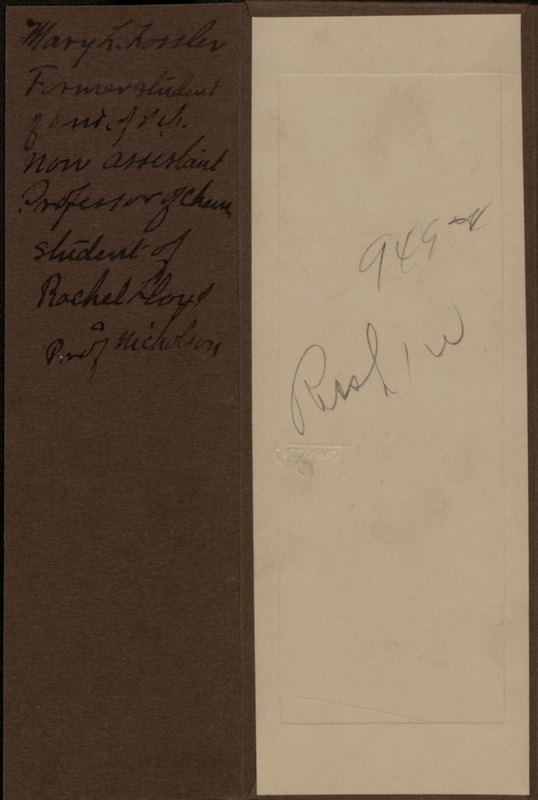 Mary L. Fossler
Former student
of Uni. of N
now assistant
Professor of Chem
student of
Rachel Lloyd
Prof Nicholson
949
Rush